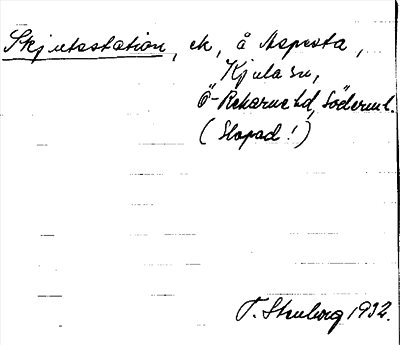 Skjutsstation, ek, å Aspesta,
Kjula sn,
Ö-Rekarne hd, Söderml.
(Slopad!)
T. Stenborg 1932.